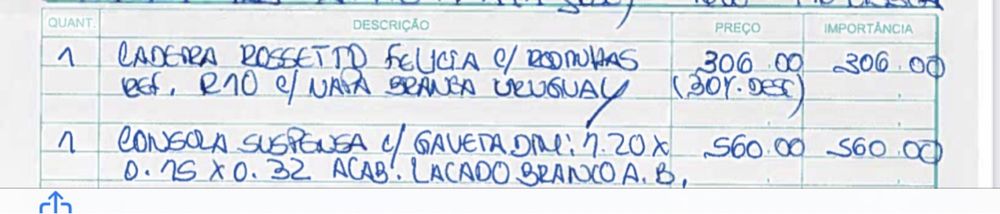 QUANT. DESCRIÇÃO PREÇO IMPORTÂNCIA
1 CADEIRA ROSSETTO FELICIA C/ RODINHAS 306.00 306.00
REF. R10 C/ NAPA BRANCA URUGUAY (30%.DESC)
1 CONSOLA SUSPENSA C/ GAVETA DIM: 1.20 X 560.00 560.00
0.15 X 0.32 ACAB. LACADO BRANCO A.B,